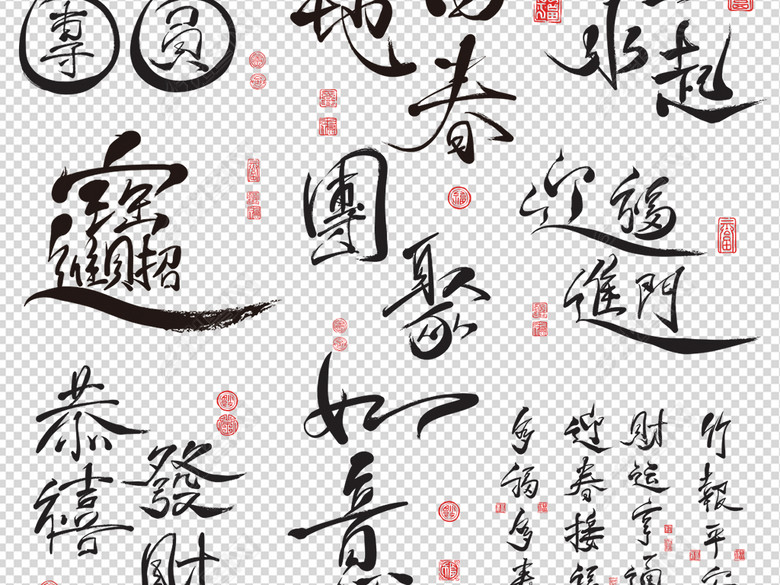 團圓
地回春
水起
招財進寶
團聚
迎福
進門
恭禧
發財
如意
竹報平安
財運亨通
迎春接福
多福多